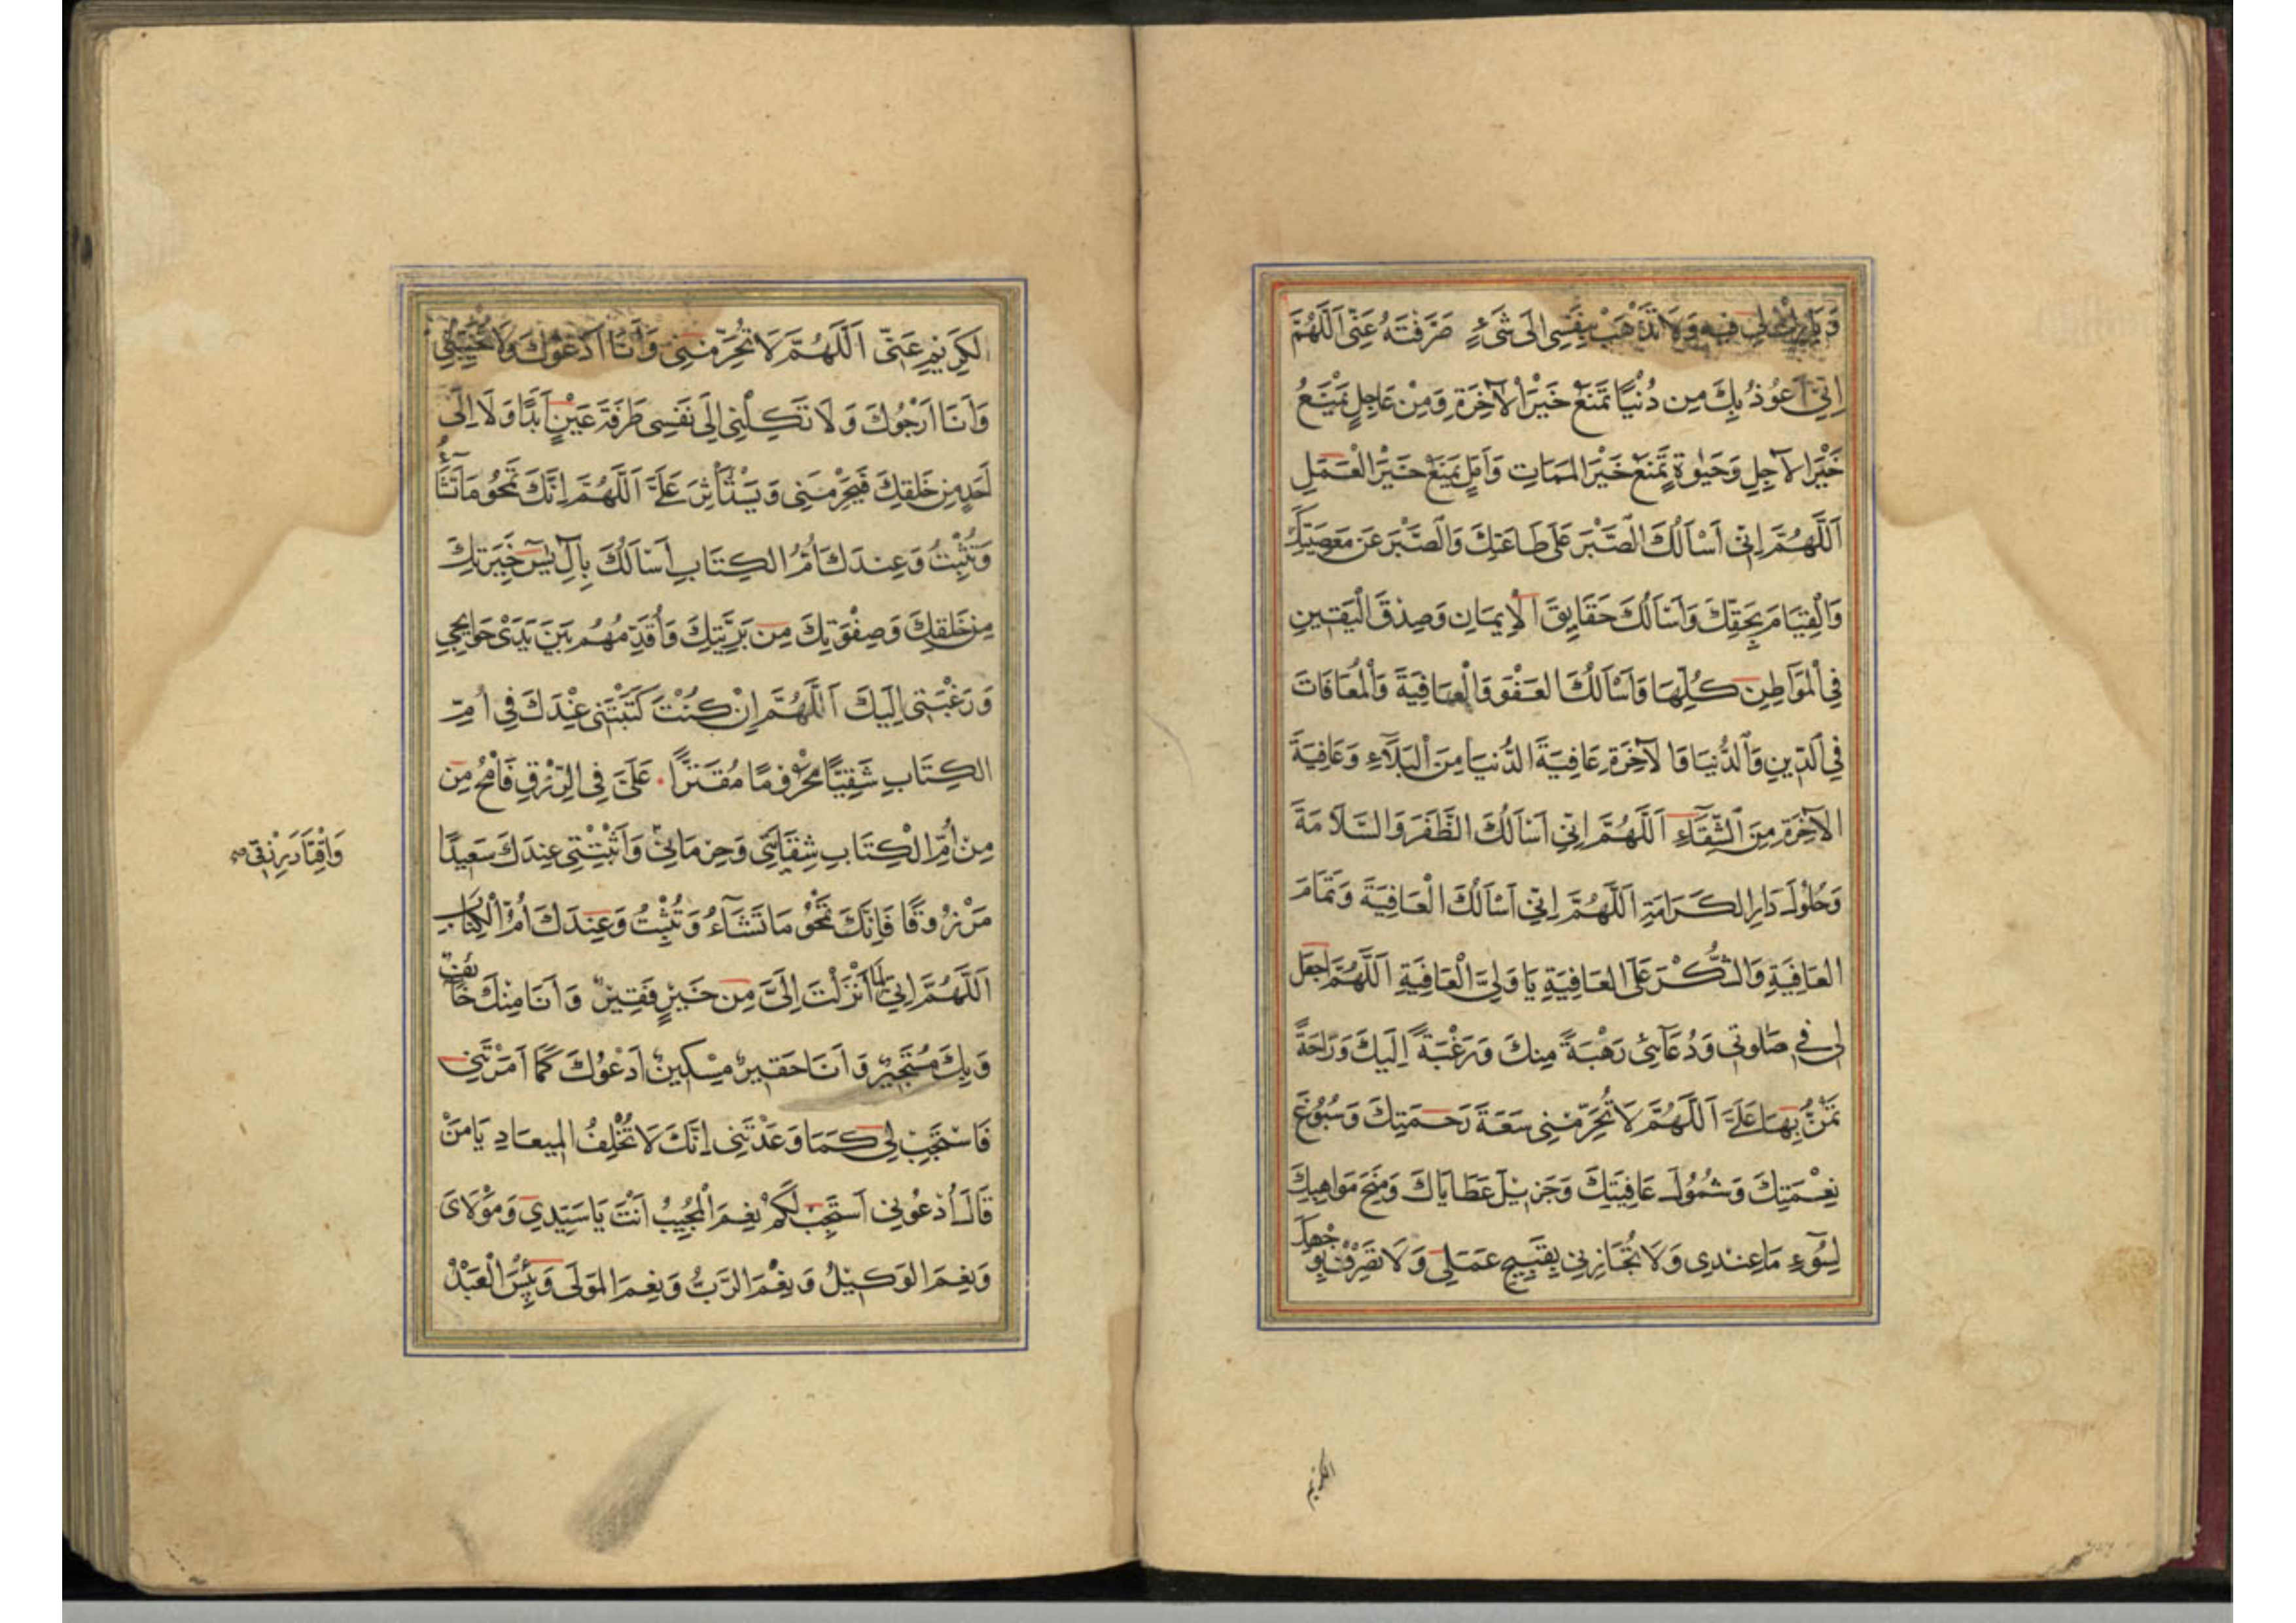 وَبَارِكْ لِي فِيهِ وَلَا تَذْهَبْ بِنَفْسِي اِلَى شَيْءٍ صَرَفْتَهُ عَنِّي اَللّٰهُمَّ
اِنِّي اَعُوذُ بِكَ مِن دُنْيَا تَمْنَعُ خَيْرَ الْآخِرَةِ وَمِنْ عَاجِلٍ يَمْنَعُ
خَيْرَ الآجِلِ وَحَيٰوةٍ تَمْنَعُ خَيْرَ المَمَاتِ وَاَمَلٍ يَمْنَعُ خَيْرَ الْعَمَلِ
اَللّٰهُمَّ اِنِّي اَسْاَلُكَ الصَّبْرَ عَلَى طَاعَتِكَ وَالصَّبْرَ عَن مَعصِيَتِكَ
وَالْقِيَامَ بِحَقِّكَ وَاَسْاَلُكَ حَقَايِقَ الْاِيمَانِ وَصِدْقَ الْيَقِينِ
فِي الْمَوَاطِنِ كُلِّهَا وَاَسْاَلُكَ العَفْوَ وَالْعَافِيَةَ وَالْمُعَافَاتَ
فِي الدِّينِ وَالدُّنْيَا وَالآخِرَةِ عَافِيَةَ الدُّنْيَا مِنَ الْبَلَآءِ وَعَافِيَةَ
الآخِرَةِ مِنَ الشِّقَآءِ اَللّٰهُمَّ اِنِّي اَسْاَلُكَ الظَّفَرَ وَالسَّلَامَةَ
وَحُلُولَ دَارِ الكَرَامَةِ اَللّٰهُمَّ اِنِّي اَسْاَلُكَ الْعَافِيَةَ وَتَمَامَ
العَافِيَةِ وَالشُّكْرَ عَلَى العَافِيَةِ يَا وَلِيَّ الْعَافِيَةِ اَللّٰهُمَّ اجعَل
لِي فِي صَلوتِي وَدُعَآئِي رَهْبَةً مِنكَ وَرَغْبَةً اِلَيكَ وَرَاحَةً
تَمُنُّ بِهَا عَلَيَّ اَللّٰهُمَّ لَا تُحَرِّمْنِي سَعَةَ رَحمَتِكَ وَسُبُوغَ
نِعْمَتِكَ وَشُمُولَ عَافِيَتِكَ وَجَزِيلَ عَطَايَاكَ وَمِنَحَ مَوَاهِبِكَ
لِسُوٓءِ مَا عِندِي وَلَا تُجَازِنِي بِقَبِيحِ عَمَلِي وَلَا تَصرِفْ بِوَجْهِكَ
الكريم
الكَرِيمِ عَنِّي اَللّٰهُمَّ لَا تُحَرِّمْنِي وَاَنَا اَدْعُوكَ وَلَا تُخَيِّبْنِي
وَاَنَا اَرْجُوكَ وَلَا تَكِلْنِي اِلَى نَفسِي طَرفَةَ عَيْنٍ اَبَدًا وَلَا اِلَى
اَحَدٍ مِن خَلقِكَ فَيَحْرِمَنِي وَيَسْتَاْثِرَ عَلَيَّ اَللّٰهُمَّ اِنَّكَ تَمْحُو مَا تَشَآءُ
وَتُثْبِتُ وَعِندَكَ اُمُّ الكِتَابِ اَسْاَلُكَ بِآلِ يٰسٓ خِيَرَتِكَ
مِن خَلقِكَ وَصِفْوَتِكَ مِن بَرِيَّتِكَ وَاُقَدِّمُهُم بَينَ يَدَيْ حَوَايِجِي
وَرَغْبَتِي اِلَيكَ اَللّٰهُمَّ اِنْ كُنْتَ كَتَبْتَنِي عِنْدَكَ فِي اُمِّ
الكِتَابِ شَقِيًّا مَحْرُومًا مُقَتَّرًا عَلَيَّ فِي الرِّزْقِ فَامْحُ مِن
مِن اُمِّ الْكِتَابِ شِقَآئِي وَحِرمَانِي وَاَثْبِتْنِي عِندَكَ سَعِيدًا
وَاِقْتَارَ رِزْقِي صح
مَرْزُوقًا فَاِنَّكَ تَمْحُو مَا تَشَآءُ وَتُثْبِتُ وَعِندَكَ اُمُّ الْكِتَابِ
اَللّٰهُمَّ اِنِّي لِمَا اَنْزَلْتَ اِلَيَّ مِن خَيرٍ فَقِيرٌ وَاَنَا مِنْكَ خَآئِفٌ
وَبِكَ مُسْتَجِيرٌ وَاَنَا حَقِيرٌ مِسْكِينٌ اَدْعُوكَ كَمَا اَمَرْتَنِي
فَاسْتَجِبْ لِي كَمَا وَعَدْتَنِي اِنَّكَ لَا تُخْلِفُ المِيعَادِ يَا مَنْ
قَالَ اُدْعُونِي اَسْتَجِبْ لَكُمْ نِعْمَ الْمُجِيبُ اَنْتَ يَا سَيِّدِي وَمَوْلَايَ
وَنِعْمَ الوَكِيلُ وَنِعْمَ الرَّبُّ وَنِعْمَ المَوْلَى وَبِئْسَ الْعَبْدُ